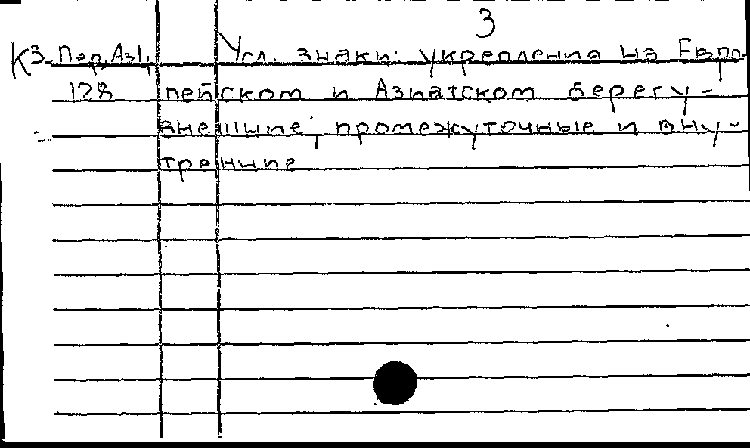 3
К3-Пер.Аз1, Усл. знаки: укрепления на Евро-
128 пейском и Азиатском берегу -
внешние, промежуточные и вну-
тренние